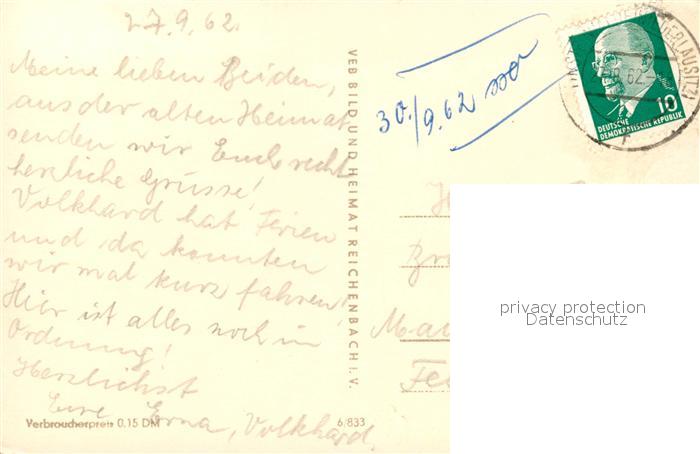 27.9.62.
Meine lieben Beiden,
aus der alten Heimat
senden wir Euch recht
herzliche Grüsse!
Volkhard hat Ferien
und da konnten
wir mal kurz fahren!
Hier ist alles noch in
Ordnung!
Herzlichst
Eure Erna, Volkhard,
Verbraucherpreis 0,15 DM
6/833
VEB BILD UND HEIMAT REICHENBACH I. V.
30./9.62
10
DEUTSCHE
DEMOKRATISCHE REPUBLIK
privacy protection
Datenschutz